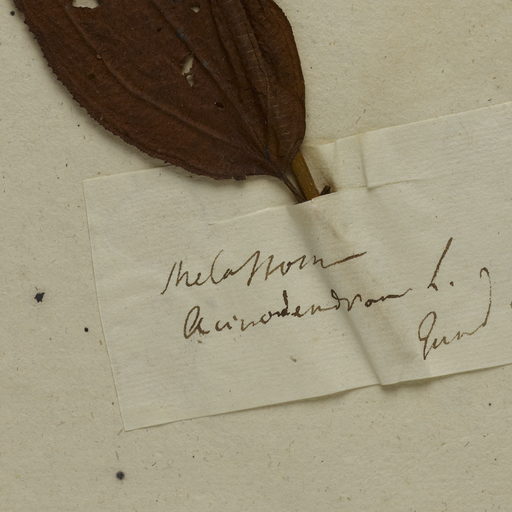 Melastom
Acinodendron L.